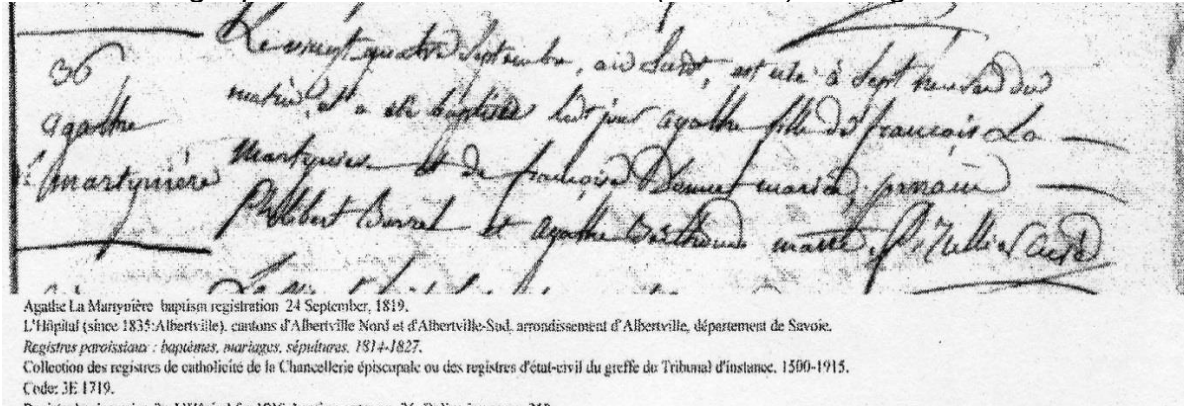 36
agathe
martynière
Le vingt quatre Septembre, est née à Sept heures du
matin, et a été baptisée agathe fille de françois La
Martynière et de françoise mariés, parrain
Philibert et agathe Curé
Agathe La Martynière baptism registration 24 September, 1819.
L'Hôpital (since 1835:Albertville), cantons d'Albertville Nord et d'Albertville-Sud, arrondissement d'Albertville, département de Savoie.
Registres paroissiaux : baptêmes, mariages, sépultures, 1814-1827.
Collection des registres de catholicité de la Chancellerie épiscopale ou des registres d'état-civil du greffe du Tribunal d'instance, 1500-1915.
Code: 3E 1719.